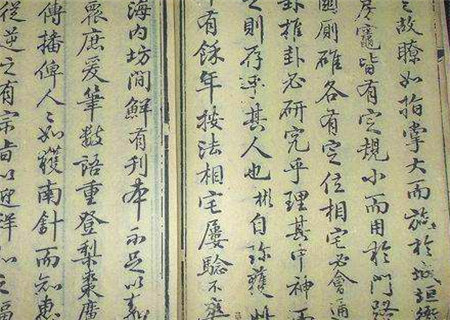 之故瞭如指掌大而施於城垣衙
竈皆有定規小而用於門路
圊厠碓各有定位相宅必會通
卦推卦必研究乎理其中神而
之則存乎其人也彬自珍獲
有餘年按法相宅屢驗不爽
海内坊間鮮有刊本不足以壽
衆庶爰筆數語重登梨棗廣
傳播俾人々如獲南針而知惠
從逆之有宗旨以迎祥